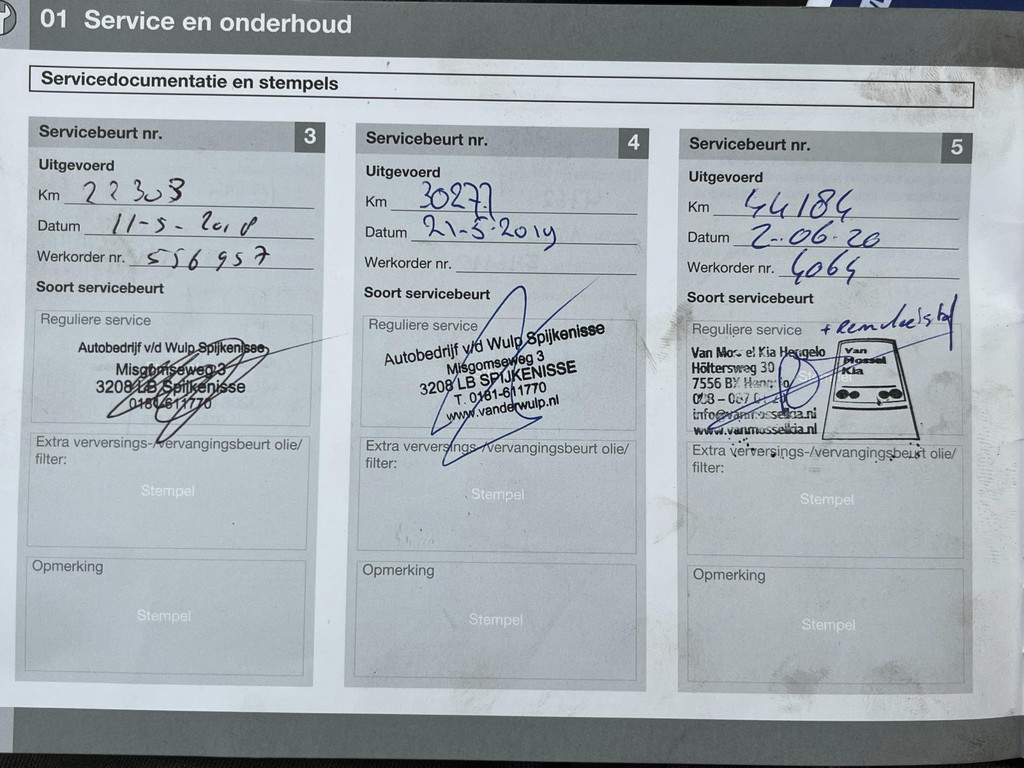 01 Service en onderhoud
Servicedocumentatie en stempels
Servicebeurt nr. 3
Uitgevoerd
Km 22303
Datum 11-5-2018
Werkorder nr. 556957
Soort servicebeurt
Reguliere service
Autobedrijf v/d Wulp Spijkenisse
Misgomseweg 3
3208 LB Spijkenisse
0181-611770
Extra verversings-/vervangingsbeurt olie/
filter:
Stempel
Opmerking
Stempel
Servicebeurt nr. 4
Uitgevoerd
Km 30277
Datum 21-5-2019
Werkorder nr.
Soort servicebeurt
Reguliere service
Autobedrijf v/d Wulp Spijkenisse
Misgomseweg 3
3208 LB SPIJKENISSE
T. 0181-611770
www.vanderwulp.nl
Extra verversings-/vervangingsbeurt olie/
filter:
Stempel
Opmerking
Stempel
Servicebeurt nr. 5
Uitgevoerd
Km 44184
Datum 2-06-20
Werkorder nr. 4064
Soort servicebeurt
Reguliere service + remvloeistof
Van Mossel Kia Hengelo
Höltersweg 30
7556 BX Hengelo
info@vanmosselkia.nl
www.vanmosselkia.nl
Van
Mossel
Kia
Extra verversings-/vervangingsbeurt olie/
filter:
Stempel
Opmerking
Stempel